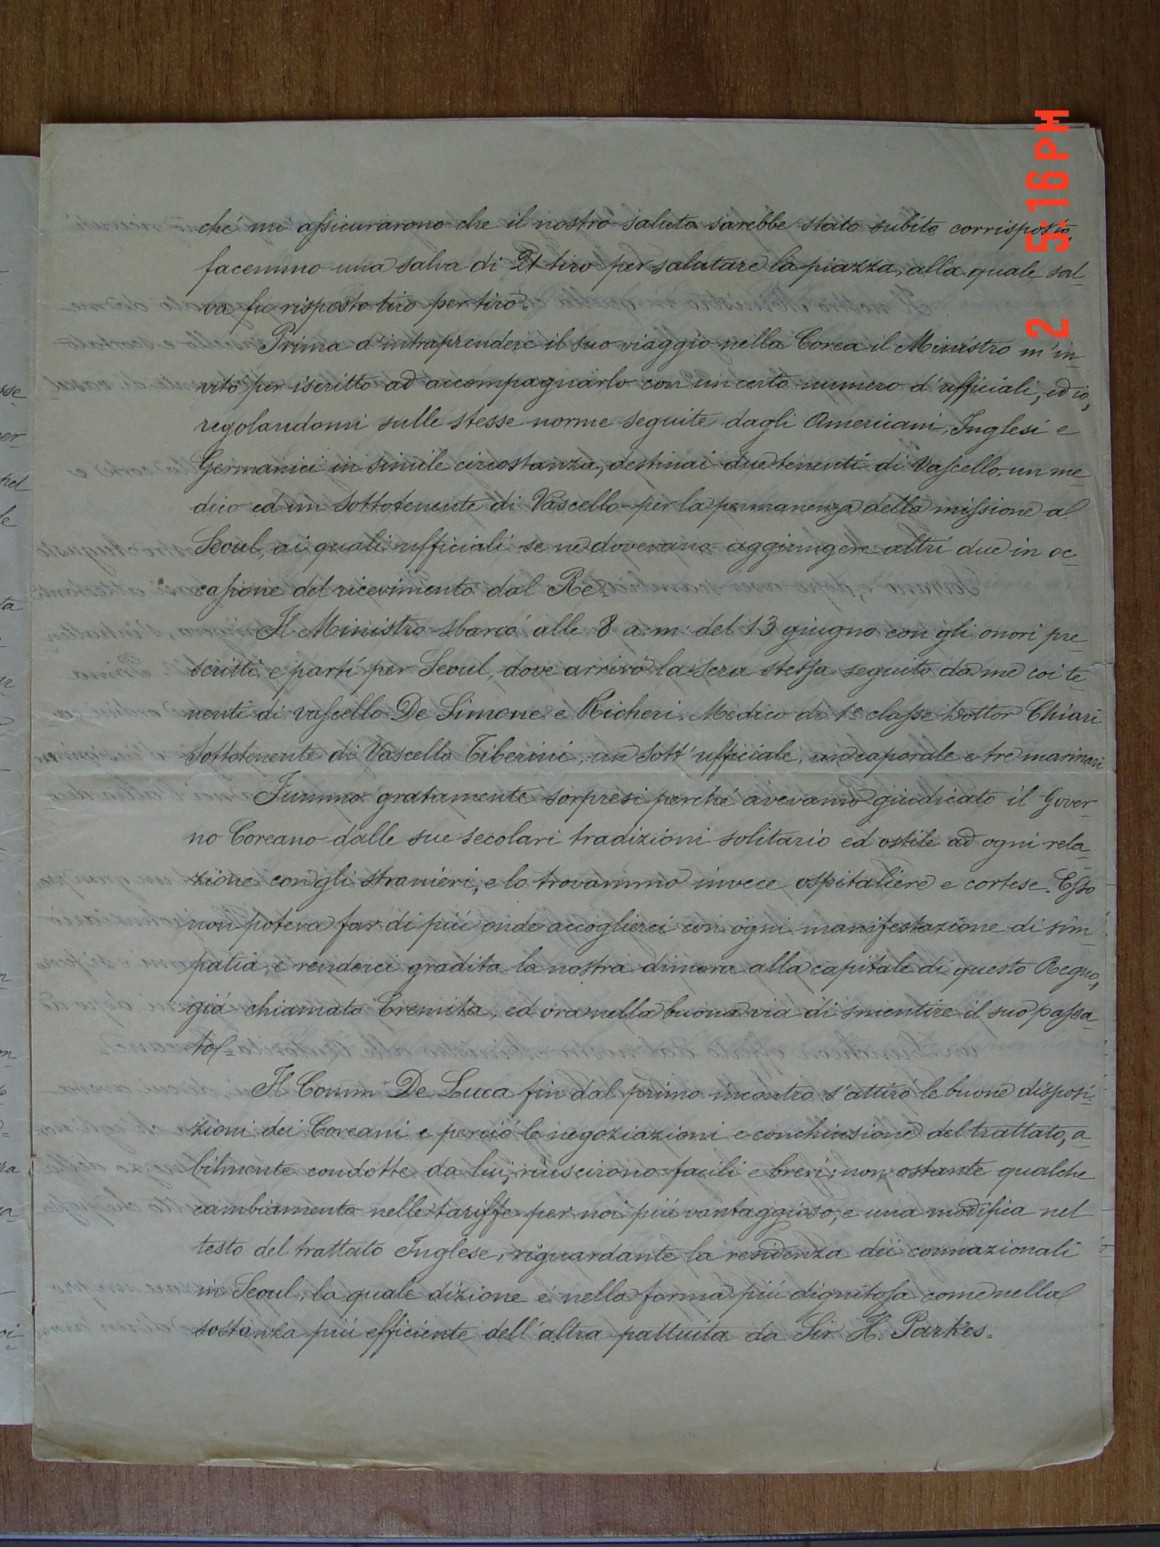 ché mi assicurarono che il nostro saluto sarebbe stato subito corrisposto,
facemmo una salva di 21 tiro per salutare la piazza, alla quale sal-
va fu risposto tiro per tiro.
Prima d'intraprendere il suo viaggio nella Corea il Ministro m'in-
vitò per iscritto ad accompagnarlo con un certo numero d'ufficiali, ed io,
regolandomi sulle stesse norme seguite dagli Americani, Inglesi e
Germanici in simile circostanza, destinai due tenenti di Vascello, un me
dico ed un sottotenente di Vascello per la permanenza della missione al
Seoul, ai quali ufficiali se ne dovevano aggiungere altri due in oc-
casione del ricevimento dal Re.
Il Ministro sbarcò alle 8 a.m. del 13 giugno con gli onori pre-
scritti, e partì per Seoul, dove arrivò la sera stessa seguito da me coi te-
nenti di vascello De Simone e Richeri, Medico di 1ª classe Dottor Chiari
Sottotenente di Vascello Tiberini, un sott'ufficiale, un caporale e tre marinari
Fummo gratamente sorpresi perché avevamo giudicato il Gover-
no Coreano dalle sue secolari tradizioni solitario ed ostile ad ogni rela-
zione con gli stranieri, e lo trovammo invece ospitaliere e cortese. Esso
non poteva far di più onde accoglierci con ogni manifestazione di sim-
patia, e renderci gradita la nostra dimora alla capitale di questo Regno,
già chiamato Eremita, ed ora nella buona via di smentire il suo passa-
to.
Il Comm. De Luca fin dal primo incontro s'attirò le buone disposi-
zioni dei Coreani e perciò le negoziazioni e conchiusione del trattato, a-
bilmente condotte da lui, riuscirono facili e brevi; non ostante qualche
cambiamento nelle tariffe per noi più vantaggioso, e una modifica nel
testo del trattato Inglese, riguardante la residenza dei connazionali
in Seoul, la quale dizione è nella forma più dignitosa come nella
sostanza più efficiente dell'altra pattuita da Sir H. Parkes.
2 5:16PM